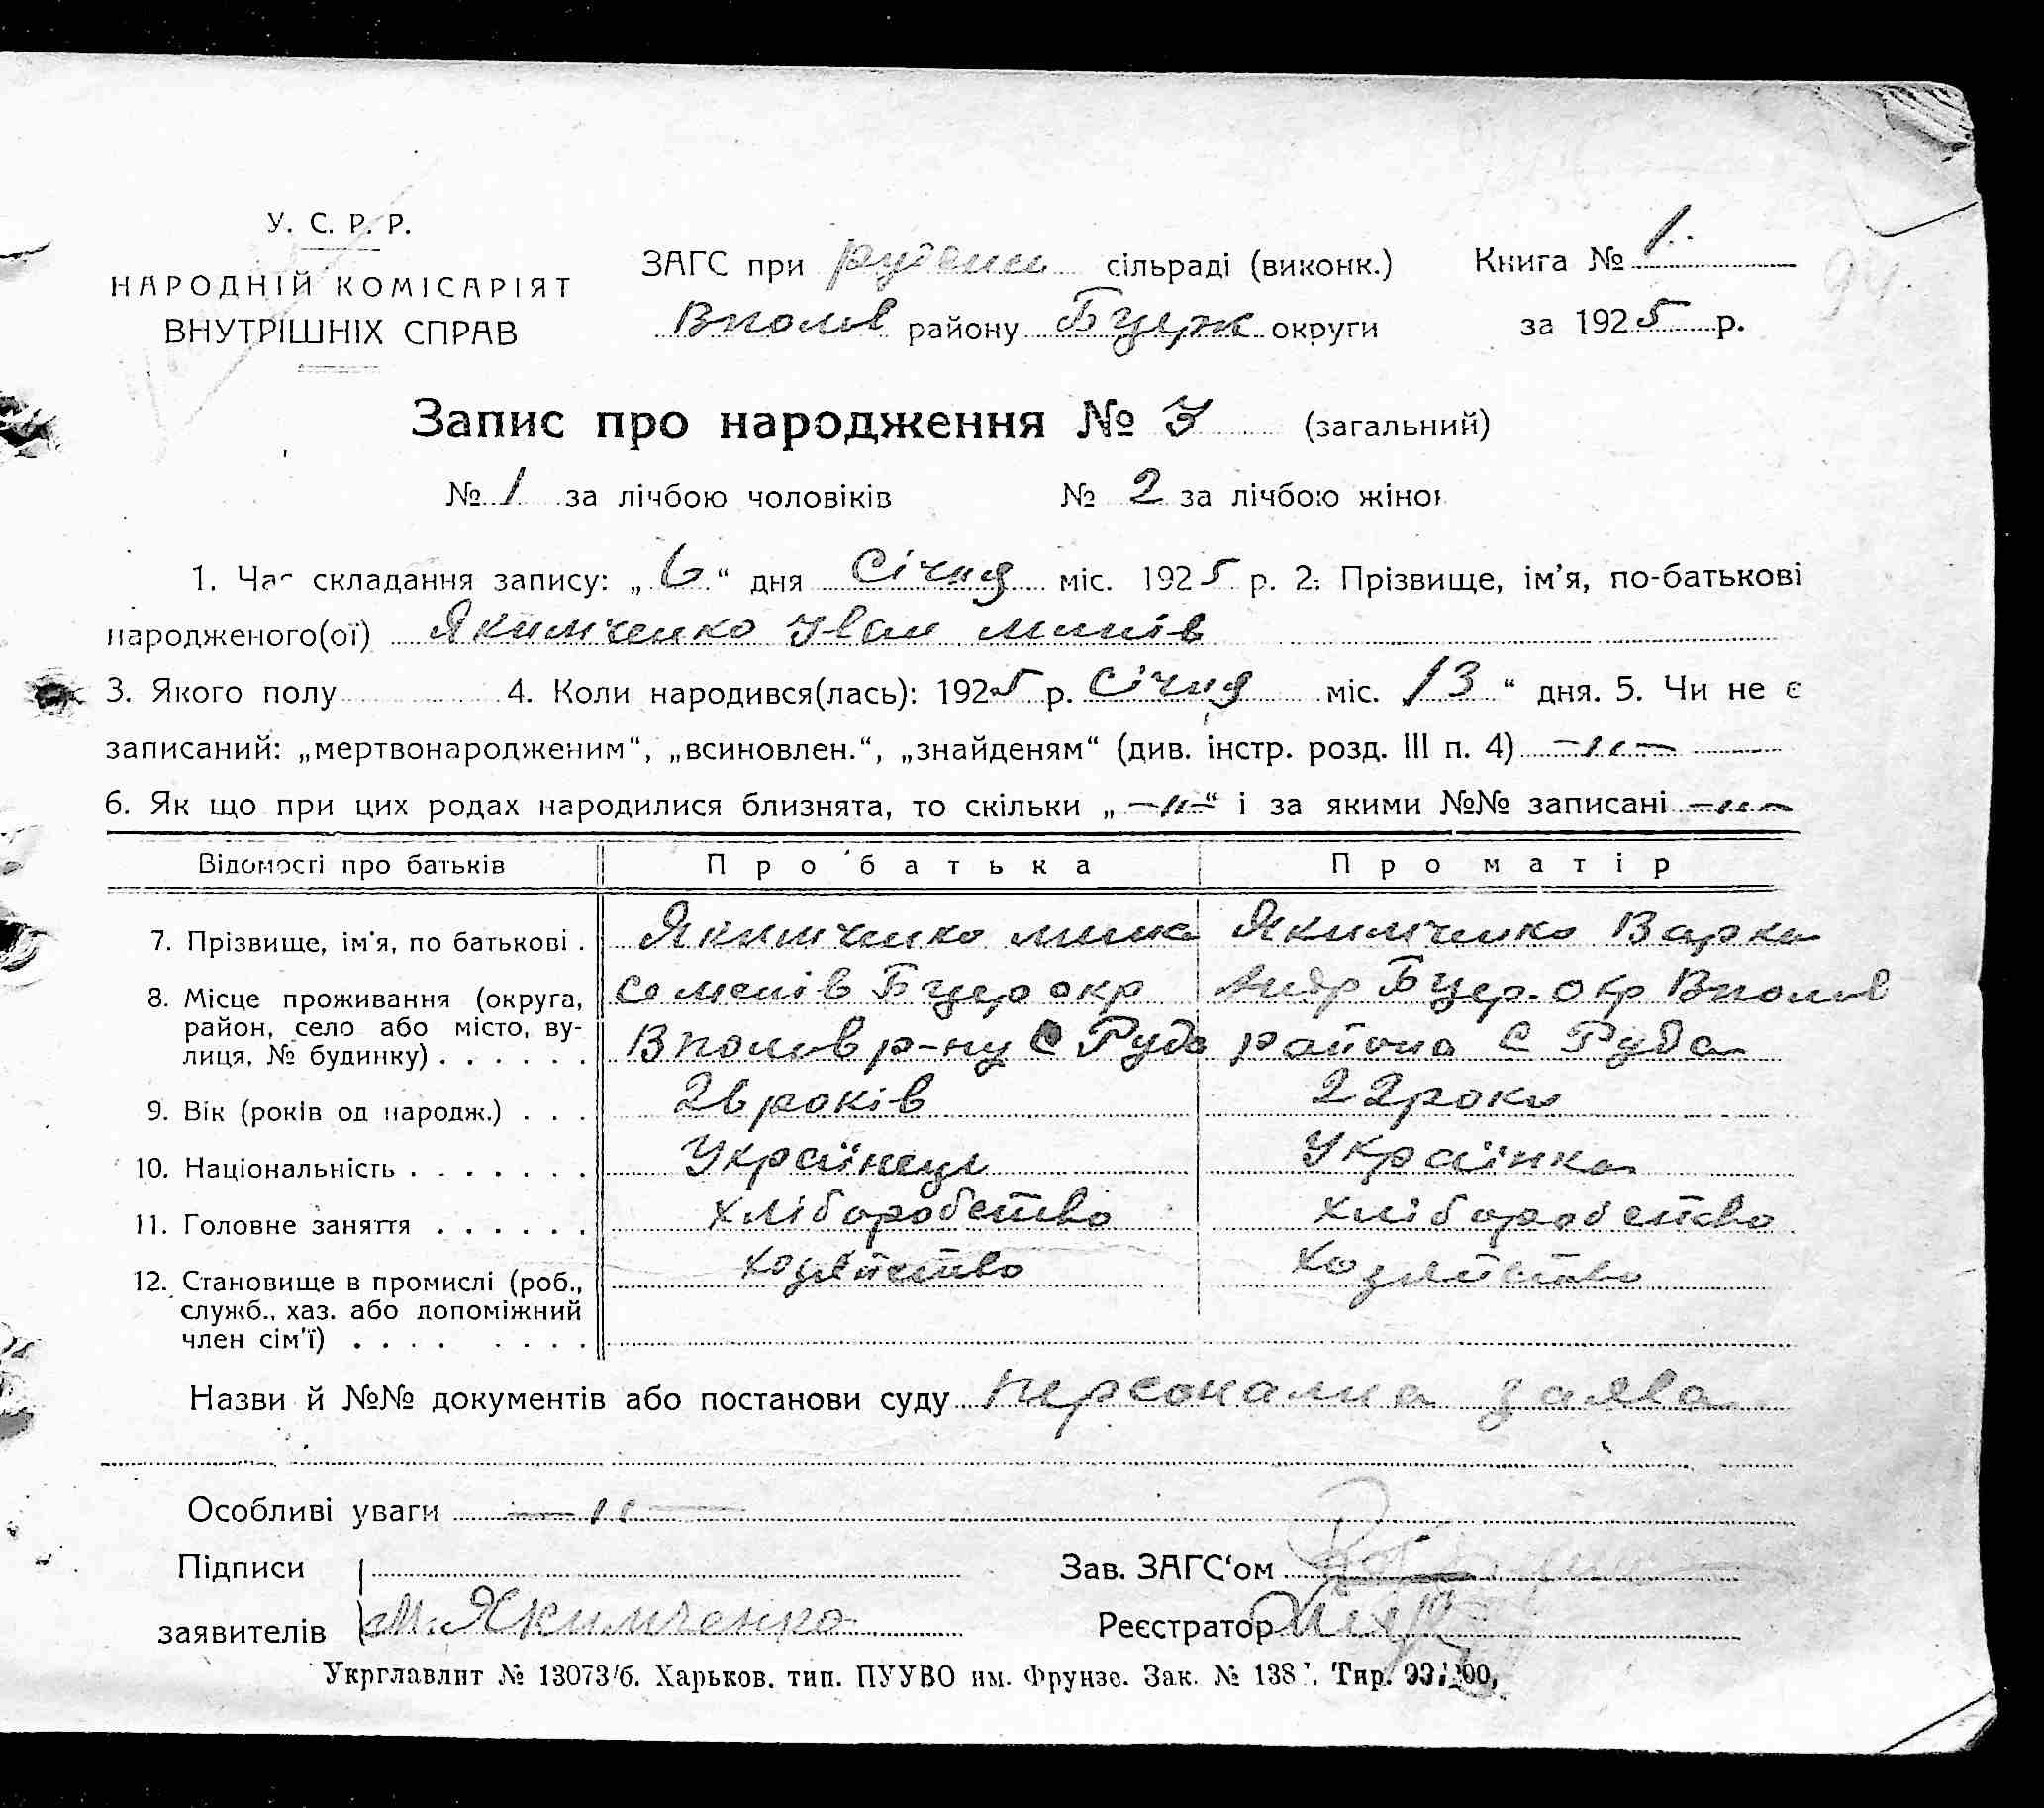 У. С. Р. Р.
НАРОДНІЙ КОМІСАРІЯТ
ВНУТРІШНІХ СПРАВ
ЗАГС при сільраді (виконк.)
Вполов району Бцерк округи
Книга № 1.
за 1925 р.
94
Запис про народження № 3 (загальний)
№ 1 за лічбою чоловіків № 2 за лічбою жінок
1. Час складання запису: „6“ дня Січня міс. 1925 р. 2. Прізвище, ім'я, по-батькові
народженого(ої) Якимченко Іван Минів
3. Якого полу 4. Коли народився(лась): 1925 р. Січня міс. 13 “ дня. 5. Чи не є
записаний: „мертвонародженим“, „всиновлен.“, „знайденям“ (див. інстр. розд. III п. 4) —〃—
6. Як що при цих родах народилися близнята, то скільки „—〃—“ і за якими №№ записані —〃—
Відомості про батьків Про батька Про матір
7. Прізвище, ім'я, по батькові . Якимченко Мина Якимченко Варка
8. Місце проживання (округа, Семенів Бцер окр Андр Бцер. окр Вполов
район, село або місто, ву- Вполов р-ну С Руда района С Руда
лиця, № будинку) . . . . . .
9. Вік (років од народж.) . . . 26 років 22 роки
10. Національність . . . . . . . Українець Українка
11. Головне заняття . . . . . . хліборобство хліборобство
12. Становище в промислі (роб., хозяйство хозяйство
служб., хаз. або допоміжний
член сім'ї) . . . . . . . .
Назви й №№ документів або постанови суду персонална заява
Особливі уваги —〃—
Підписи Зав. ЗАГС‘ом
заявителів М. Якимченко Реєстратор
Укрглавлит № 13073/б. Харьков. тип. ПУУВО им. Фрунзе. Зак. № 138 Тир.